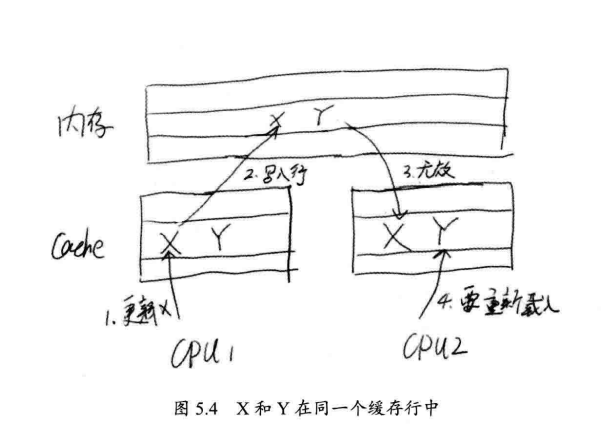 内存
X Y
2.写入行
3.无效
Cache
X Y
X Y
1.更新X
4.要重新载入
CPU1
CPU2
图 5.4 X 和 Y 在同一个缓存行中